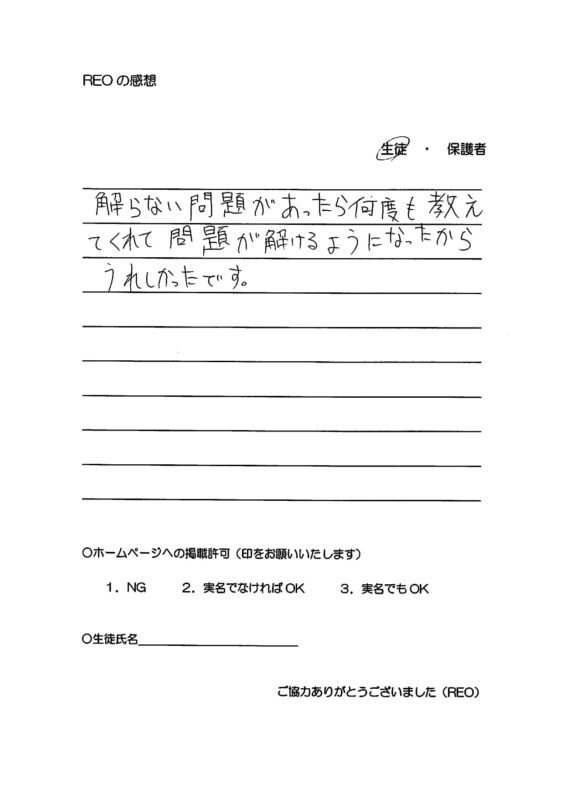 REOの感想
生徒 ・ 保護者
解らない問題があったら何度も教え
てくれて問題が解けるようになったから
うれしかったです。
○ホームページへの掲載許可（印をお願いいたします）
1．NG 2．実名でなければOK 3．実名でもOK
○生徒氏名
ご協力ありがとうございました（REO）